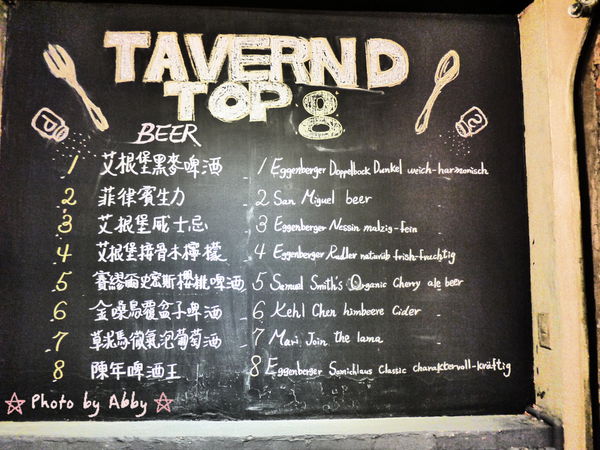 TAVERN D
TOP 8
BEER
1 艾根堡黑麥啤酒 1 Eggenberger Doppelbock Dunkel weich-harmonisch
2 菲律賓生力 2 San Miguel beer
3 艾根堡威士忌 3 Eggenberger Nessin malzig-fein
4 艾根堡接骨木檸檬 4 Eggenberger Radler naturüb frish-fruchtig
5 賽繆爾史密斯櫻桃啤酒 5 Samuel Smith's Organic Cherry ale beer
6 金嗓鳥覆盆子啤酒 6 Kehl Chen himbeere Cider
7 草泥馬微氣泡葡萄酒 7 Mari Join the lama
8 陳年啤酒王 8 Eggenberger Samichlaus Classic charaktervoll-kräftig
Photo by Abby